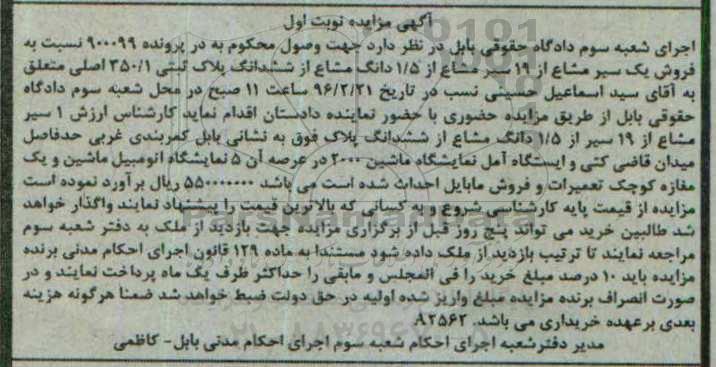 آگهی مزایده نوبت اول
اجرای شعبه سوم دادگاه حقوقی بابل در نظر دارد جهت وصول محکوم به در پرونده ۹۰۰۰۹۹ نسبت به
فروش یک سیر مشاع از ۱۹ سیر مشاع از ۱/۵ دانگ مشاع از ششدانگ پلاک ثبتی ۳۵۰/۱ اصلی متعلق
به آقای سید اسماعیل حسینی نسب در تاریخ ۹۶/۲/۲۱ ساعت ۱۱ صبح در محل شعبه سوم دادگاه
حقوقی بابل از طریق مزایده حضوری با حضور نماینده دادستان اقدام نماید کارشناس ارزش ۱ سیر
مشاع از ۱۹ سیر از ۱/۵ دانگ مشاع از ششدانگ پلاک فوق به نشانی بابل کمربندی غربی حدفاصل
میدان قاضی کتی و ایستگاه آمل نمایشگاه ماشین ۲۰۰۰ در عرصه آن ۵ نمایشگاه اتومبیل ماشین و یک
مغازه کوچک تعمیرات و فروش مابایل احداث شده است می باشد ۵۵۰۰۰۰۰۰۰ ریال برآورد نموده است
مزایده از قیمت پایه کارشناسی شروع و به کسانی که بالاترین قیمت را پیشنهاد نمایند واگذار خواهد
شد طالبین خرید می تواند پنج روز قبل از برگزاری مزایده جهت بازدید از ملک به دفتر شعبه سوم
مراجعه نمایند تا ترتیب بازدید از ملک داده شود مستندا به ماده ۱۲۹ قانون اجرای احکام مدنی برنده
مزایده باید ۱۰ درصد مبلغ خرید را فی المجلس و مابقی را حداکثر ظرف یک ماه پرداخت نمایند و در
صورت انصراف برنده مزایده مبلغ واریز شده اولیه در حق دولت ضبط خواهد شد ضمنا هرگونه هزینه
بعدی برعهده خریداری می باشد. ۸۲۵۶۲
مدیر دفترشعبه اجرای احکام شعبه سوم اجرای احکام مدنی بابل- کاظمی
ParsNamadData